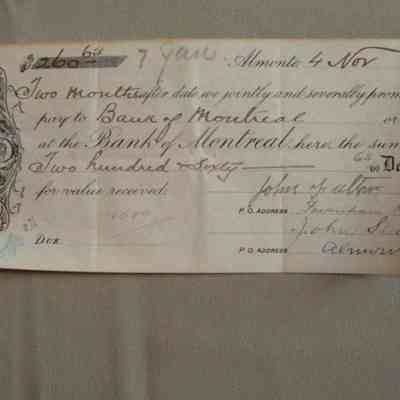 $260 65 7 Jan Almonte 4 Nov
Two Months after date we jointly and severally prom
pay to Bank of Montreal or
at the Bank of Montreal, here, the sum
Two hundred & Sixty 65 Do
for value received. John
P. O. ADDRESS
John
Due P. O. ADDRESS